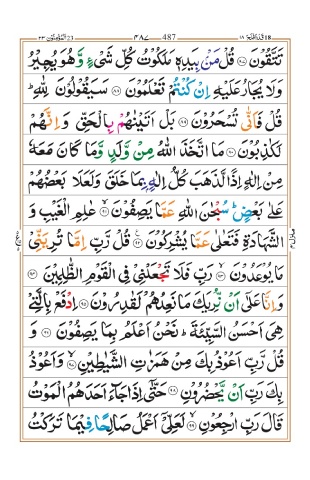 487
تَتَّقُوْنَ ﴿۸۷﴾ قُلْ مَنْۢ بِيَدِهٖ مَلَكُوْتُ كُلِّ شَىْءٍ وَّهُوَ يُجِيْرُ
وَلَا يُجَارُ عَلَيْهِ اِنْ كُنْتُمْ تَعْلَمُوْنَ ﴿۸۸﴾ سَيَقُوْلُوْنَ لِلّٰهِ ؕ
قُلْ فَاَنّٰى تُسْحَرُوْنَ ﴿۸۹﴾ بَلْ اَتَيْنٰهُمْ بِالْحَقِّ وَاِنَّهُمْ
لَكٰذِبُوْنَ ﴿۹۰﴾ مَا اتَّخَذَ اللّٰهُ مِنْ وَّلَدٍ وَّمَا كَانَ مَعَهٗ
مِنْ اِلٰهٍ اِذًا لَّذَهَبَ كُلُّ اِلٰهٍۢ بِمَا خَلَقَ وَلَعَلَا بَعْضُهُمْ
عَلٰى بَعْضٍ ؕ سُبْحٰنَ اللّٰهِ عَمَّا يَصِفُوْنَ ﴿۹۱﴾ عٰلِمِ الْغَيْبِ وَ
الشَّهَادَةِ فَتَعٰلٰى عَمَّا يُشْرِكُوْنَ ﴿۹۲﴾ قُلْ رَّبِّ اِمَّا تُرِيَنِّىْ
مَا يُوْعَدُوْنَ ﴿۹۳﴾ رَبِّ فَلَا تَجْعَلْنِىْ فِى الْقَوْمِ الظّٰلِمِيْنَ ﴿۹۴﴾
وَاِنَّا عَلٰٓى اَنْ نُّرِيَكَ مَا نَعِدُهُمْ لَقٰدِرُوْنَ ﴿۹۵﴾ اِدْفَعْ بِالَّتِىْ
هِىَ اَحْسَنُ السَّيِّئَةَ ؕ نَحْنُ اَعْلَمُ بِمَا يَصِفُوْنَ ﴿۹۶﴾ وَ
قُلْ رَّبِّ اَعُوْذُ بِكَ مِنْ هَمَزٰتِ الشَّيٰطِيْنِ ﴿۹۷﴾ وَاَعُوْذُ
بِكَ رَبِّ اَنْ يَّحْضُرُوْنِ ﴿۹۸﴾ حَتّٰٓى اِذَا جَآءَ اَحَدَهُمُ الْمَوْتُ
قَالَ رَبِّ ارْجِعُوْنِ ﴿۹۹﴾ لَعَلِّىْٓ اَعْمَلُ صَالِحًا فِيْمَا تَرَكْتُ